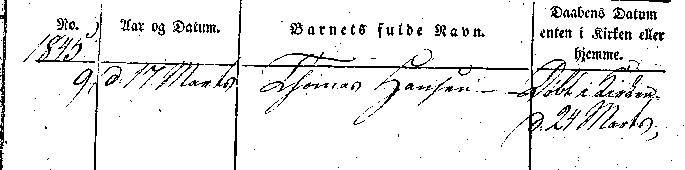 No. Aar og Datum. Barnets fulde Navn. Daabens Datum
enten i Kirken eller
hjemme.
1845
9, d. 17 Marts Thomas Hansen — Döbt i Kirken
d. 24 Marts,